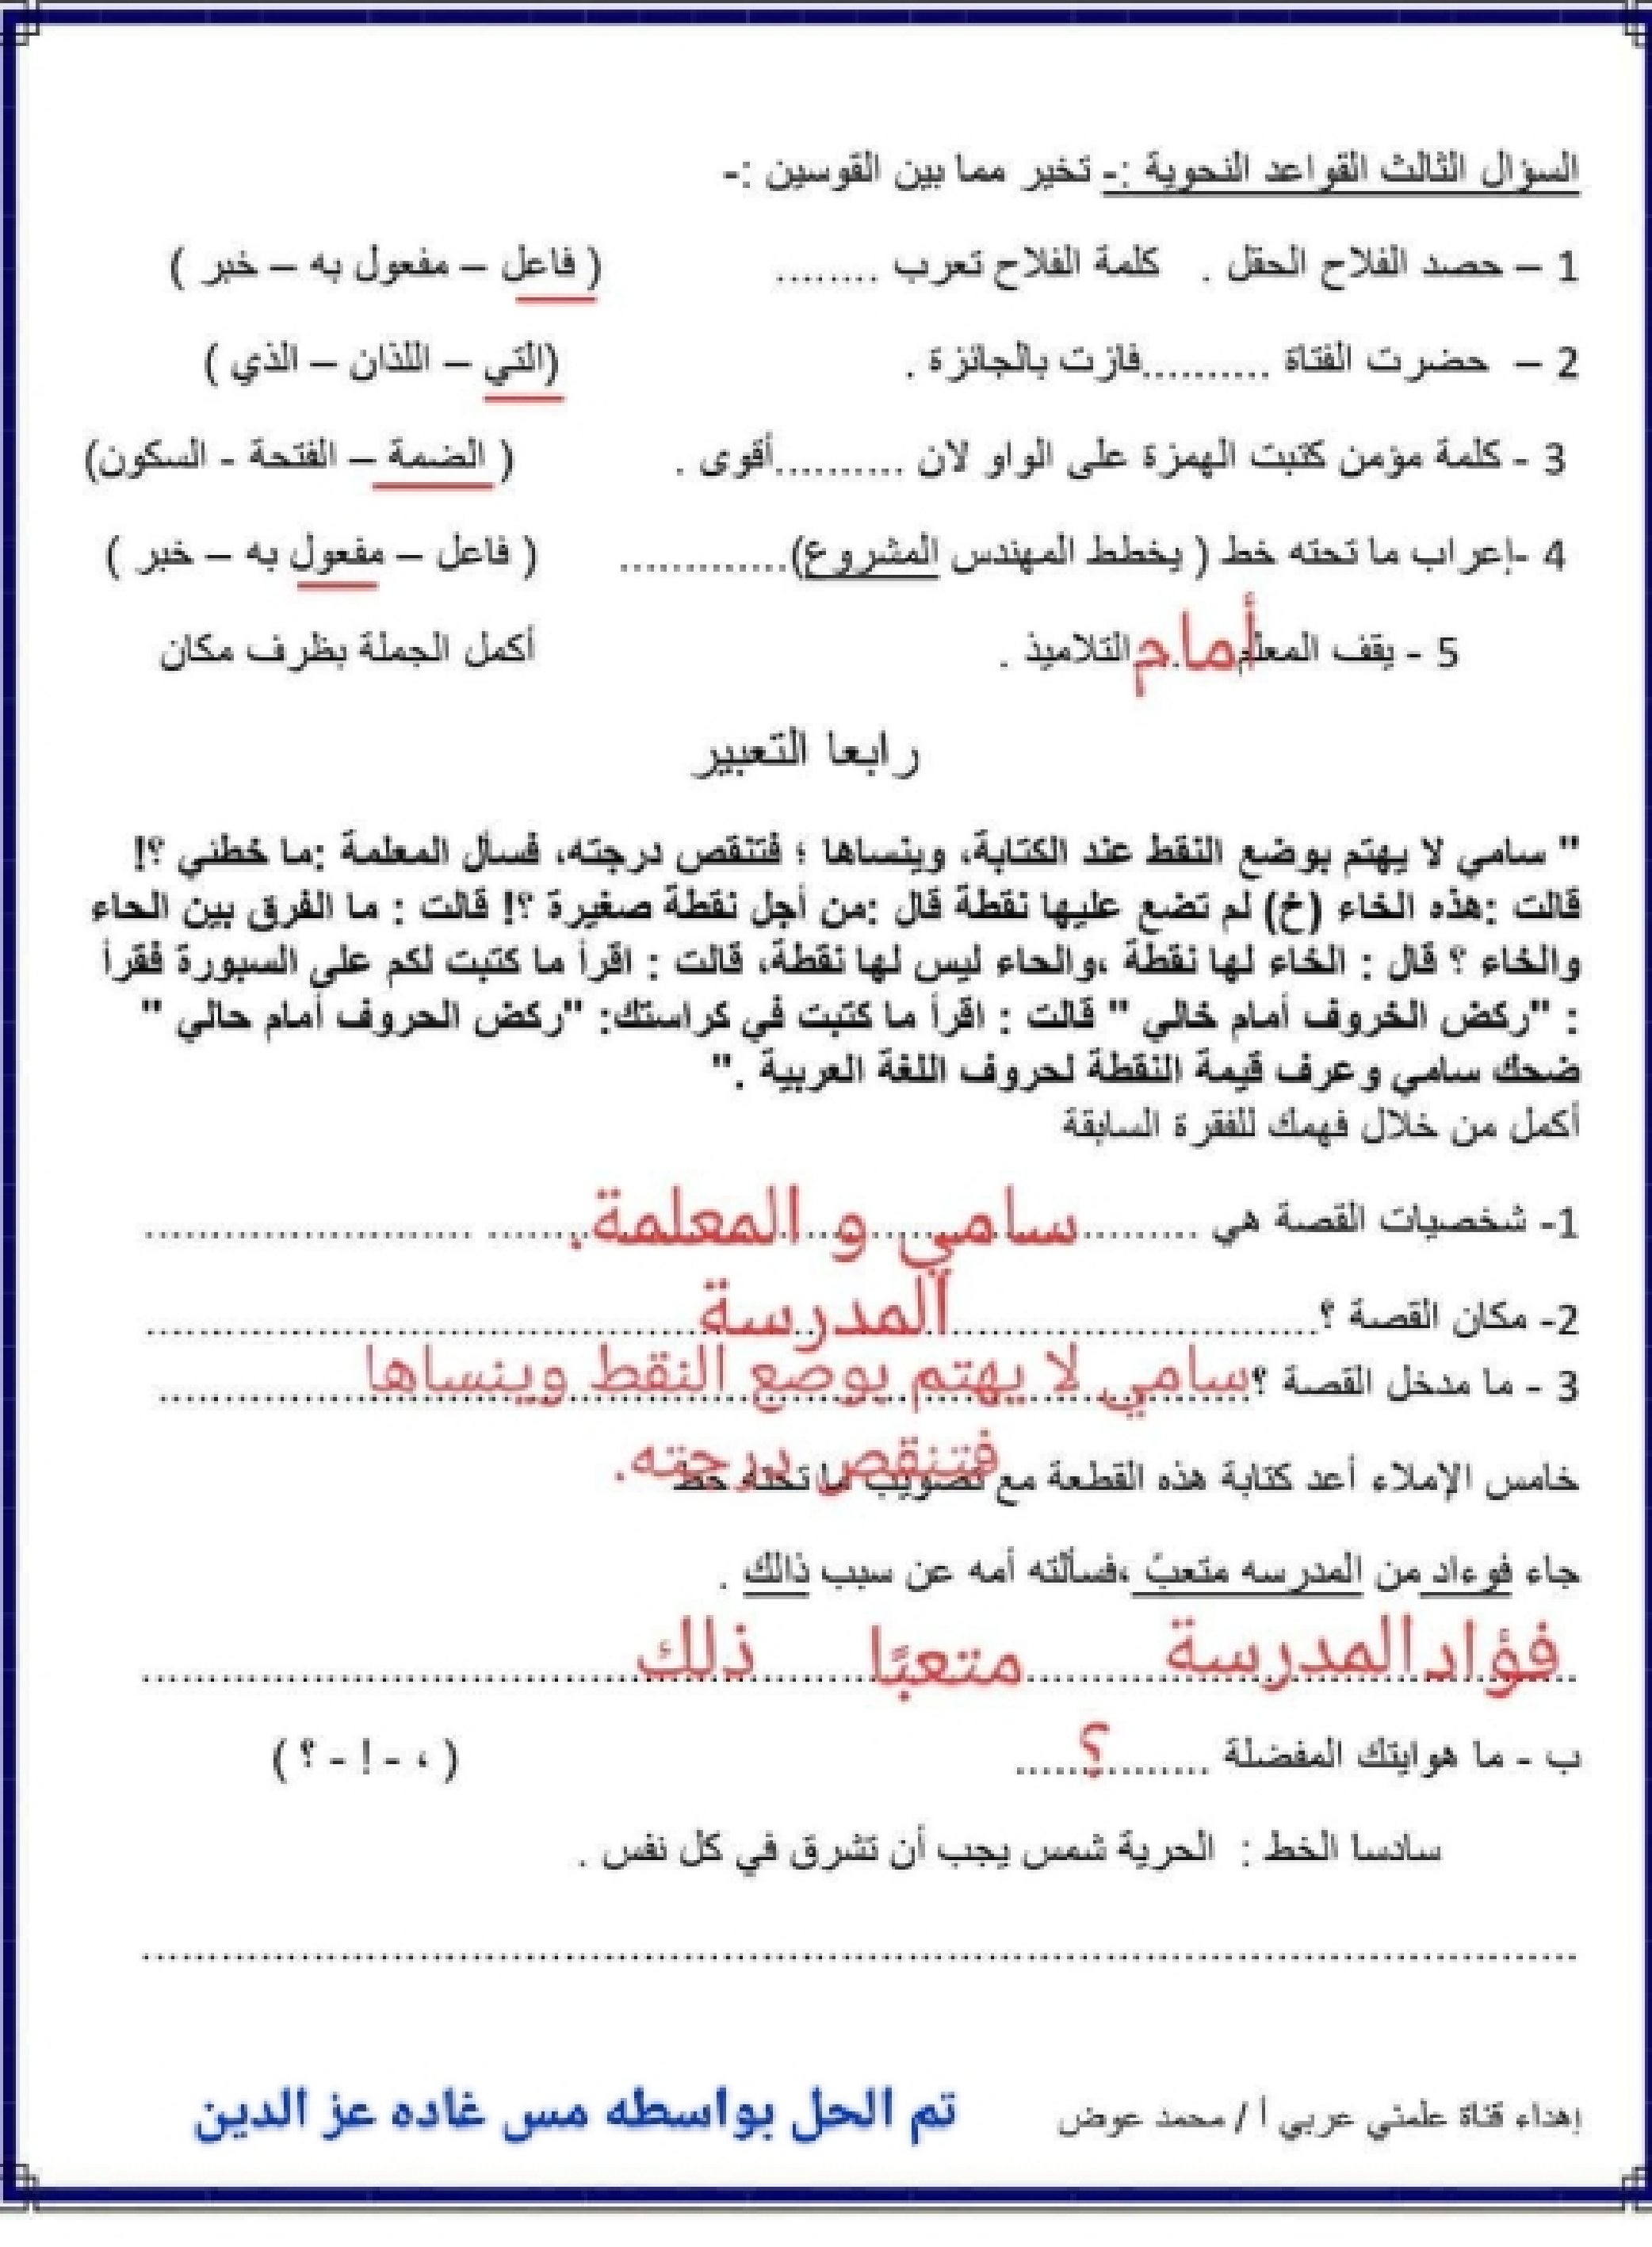 السؤال الثالث القواعد النحوية :- تخير مما بين القوسين :-
1 – حصد الفلاح الحقل . كلمة الفلاح تعرب ........ ( فاعل – مفعول به – خبر )
2 – حضرت الفتاة ..........فازت بالجائزة . (التي – اللذان – الذي )
3 - كلمة مؤمن كتبت الهمزة على الواو لان ..........أقوى . ( الضمة – الفتحة - السكون)
4 -إعراب ما تحته خط ( يخطط المهندس المشروع)............. ( فاعل – مفعول به – خبر )
5 - يقف المعلم أمام التلاميذ . أكمل الجملة بظرف مكان
رابعا التعبير
" سامي لا يهتم بوضع النقط عند الكتابة، وينساها ؛ فتنقص درجته، فسأل المعلمة :ما خطئي ؟!
قالت :هذه الخاء (خ) لم تضع عليها نقطة قال :من أجل نقطة صغيرة ؟! قالت : ما الفرق بين الحاء
والخاء ؟ قال : الخاء لها نقطة ،والحاء ليس لها نقطة، قالت : اقرأ ما كتبت لكم على السبورة فقرأ
: "ركض الخروف أمام خالي " قالت : اقرأ ما كتبت في كراستك: "ركض الحروف أمام حالي "
ضحك سامي وعرف قيمة النقطة لحروف اللغة العربية ."
أكمل من خلال فهمك للفقرة السابقة
1- شخصيات القصة هي .........سامي و المعلمة.......
2- مكان القصة ؟.........المدرسة.........
3 - ما مدخل القصة ؟سامي لا يهتم بوضع النقط وينساها
فتنقص درجته.
خامس الإملاء أعد كتابة هذه القطعة مع تصويب ما تحته خط
جاء فوءاد من المدرسه متعبً ،فسألته أمه عن سبب ذالك .
فؤاد المدرسة متعبًا ذلك
ب - ما هوايتك المفضلة ......؟...... ( ، - ! - ؟ )
سادسا الخط : الحرية شمس يجب أن تشرق في كل نفس .
إهداء قناة علمني عربي أ / محمد عوض تم الحل بواسطه مس غاده عز الدين